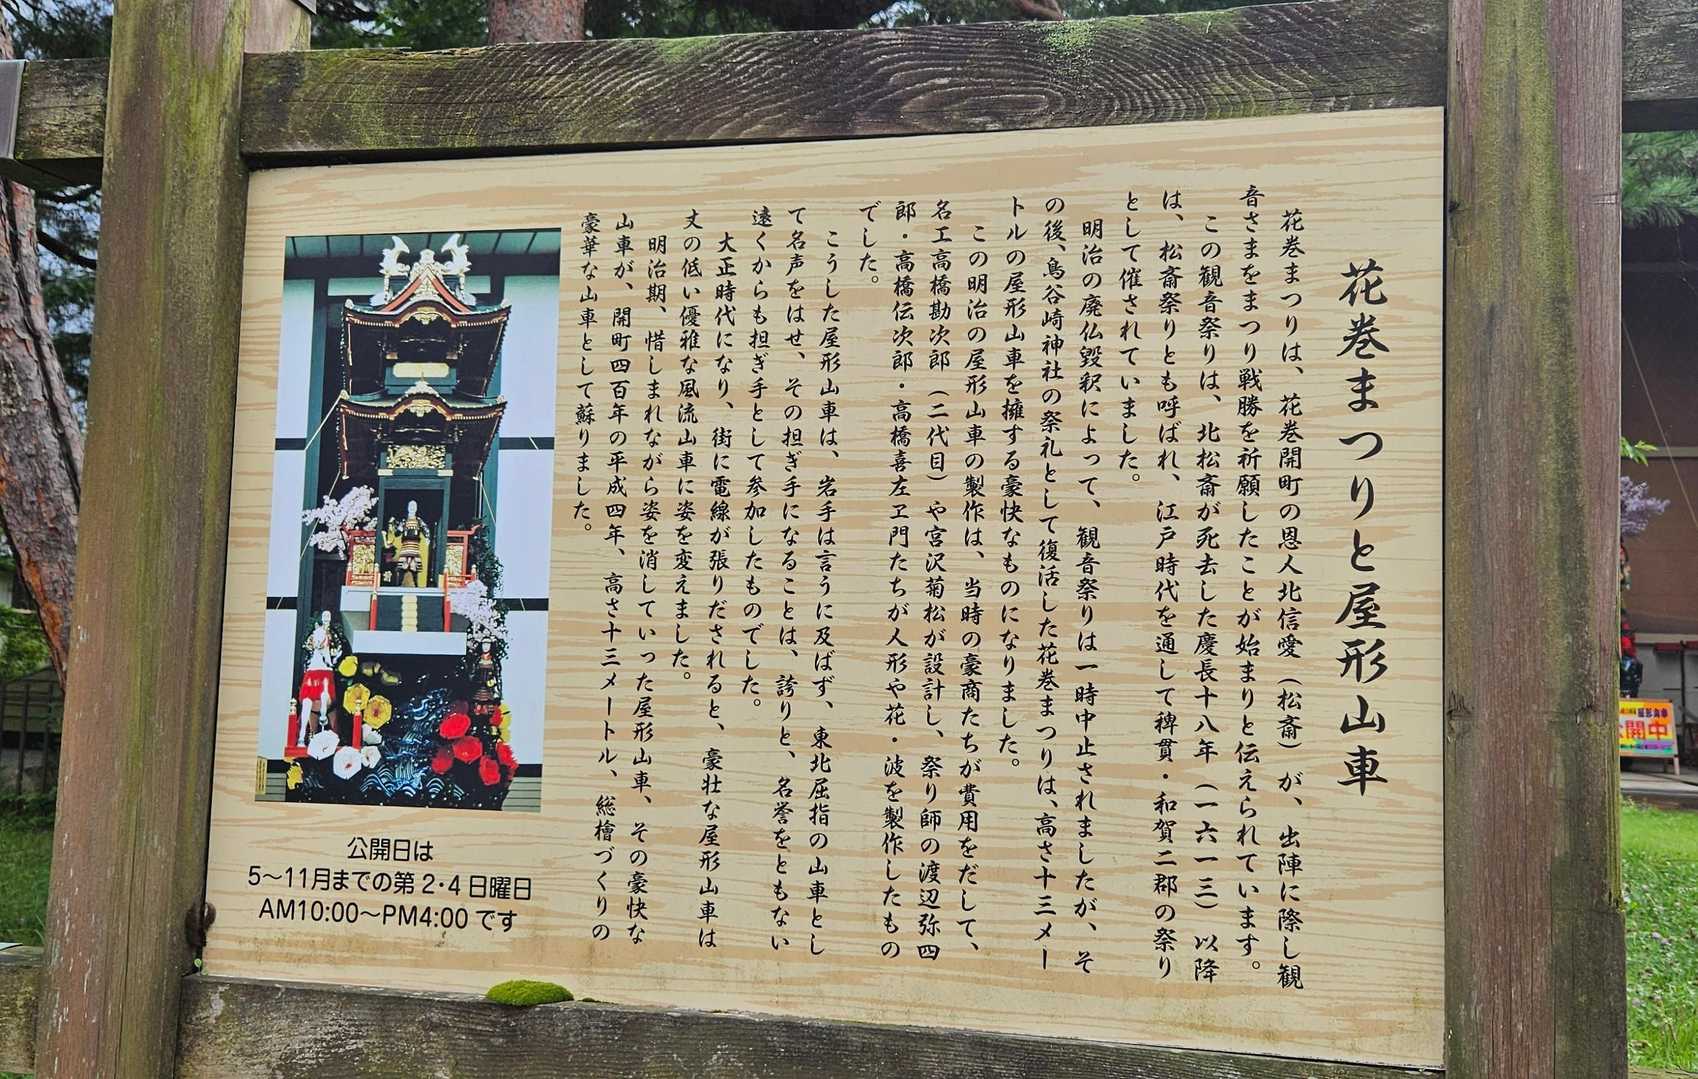 花巻まつりと屋形山車
花巻まつりは、花巻開町の恩人北信愛（松斎）が、出陣に際し観
音さまをまつり戦勝を祈願したことが始まりと伝えられています。
この観音祭りは、北松斎が死去した慶長十八年（一六一三）以降
は、松斎祭りとも呼ばれ、江戸時代を通して稗貫・和賀二郡の祭り
として催されていました。
明治の廃仏毀釈によって、観音祭りは一時中止されましたが、そ
の後、鳥谷崎神社の祭礼として復活した花巻まつりは、高さ十三メー
トルの屋形山車を擁する豪快なものになりました。
この明治の屋形山車の製作は、当時の豪商たちが費用をだして、
名工高橋勘次郎（二代目）や宮沢菊松が設計し、祭り師の渡辺弥四
郎・高橋伝次郎・高橋喜左ヱ門たちが人形や花・波を製作したもの
でした。
こうした屋形山車は、岩手は言うに及ばず、東北屈指の山車とし
て名声をはせ、その担ぎ手になることは、誇りと、名誉をともない
遠くからも担ぎ手として参加したものでした。
大正時代になり、街に電線が張りだされると、豪壮な屋形山車は
丈の低い優雅な風流山車に姿を変えました。
明治期、惜しまれながら姿を消していった屋形山車、その豪快な
山車が、開町四百年の平成四年、高さ十三メートル、総檜づくりの
豪華な山車として蘇りました。
公開日は
5～11月までの第2・4日曜日
AM10:00～PM4:00です
公開中